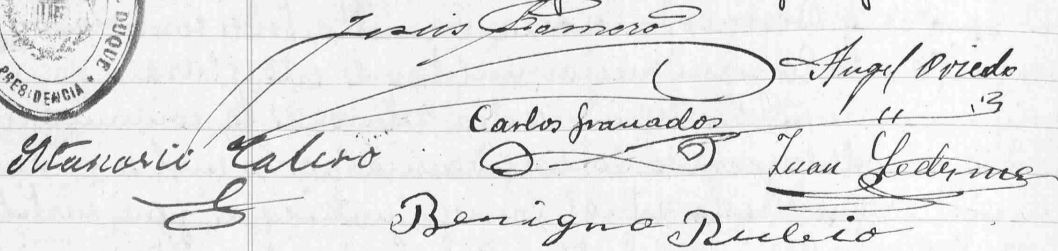 DUQUE * PRESIDENCIA *
Jesús Zamora
Angel Oviedo
Carlos Granados
Atanasio Calero
Juan Ledesma
Benigno Rubio